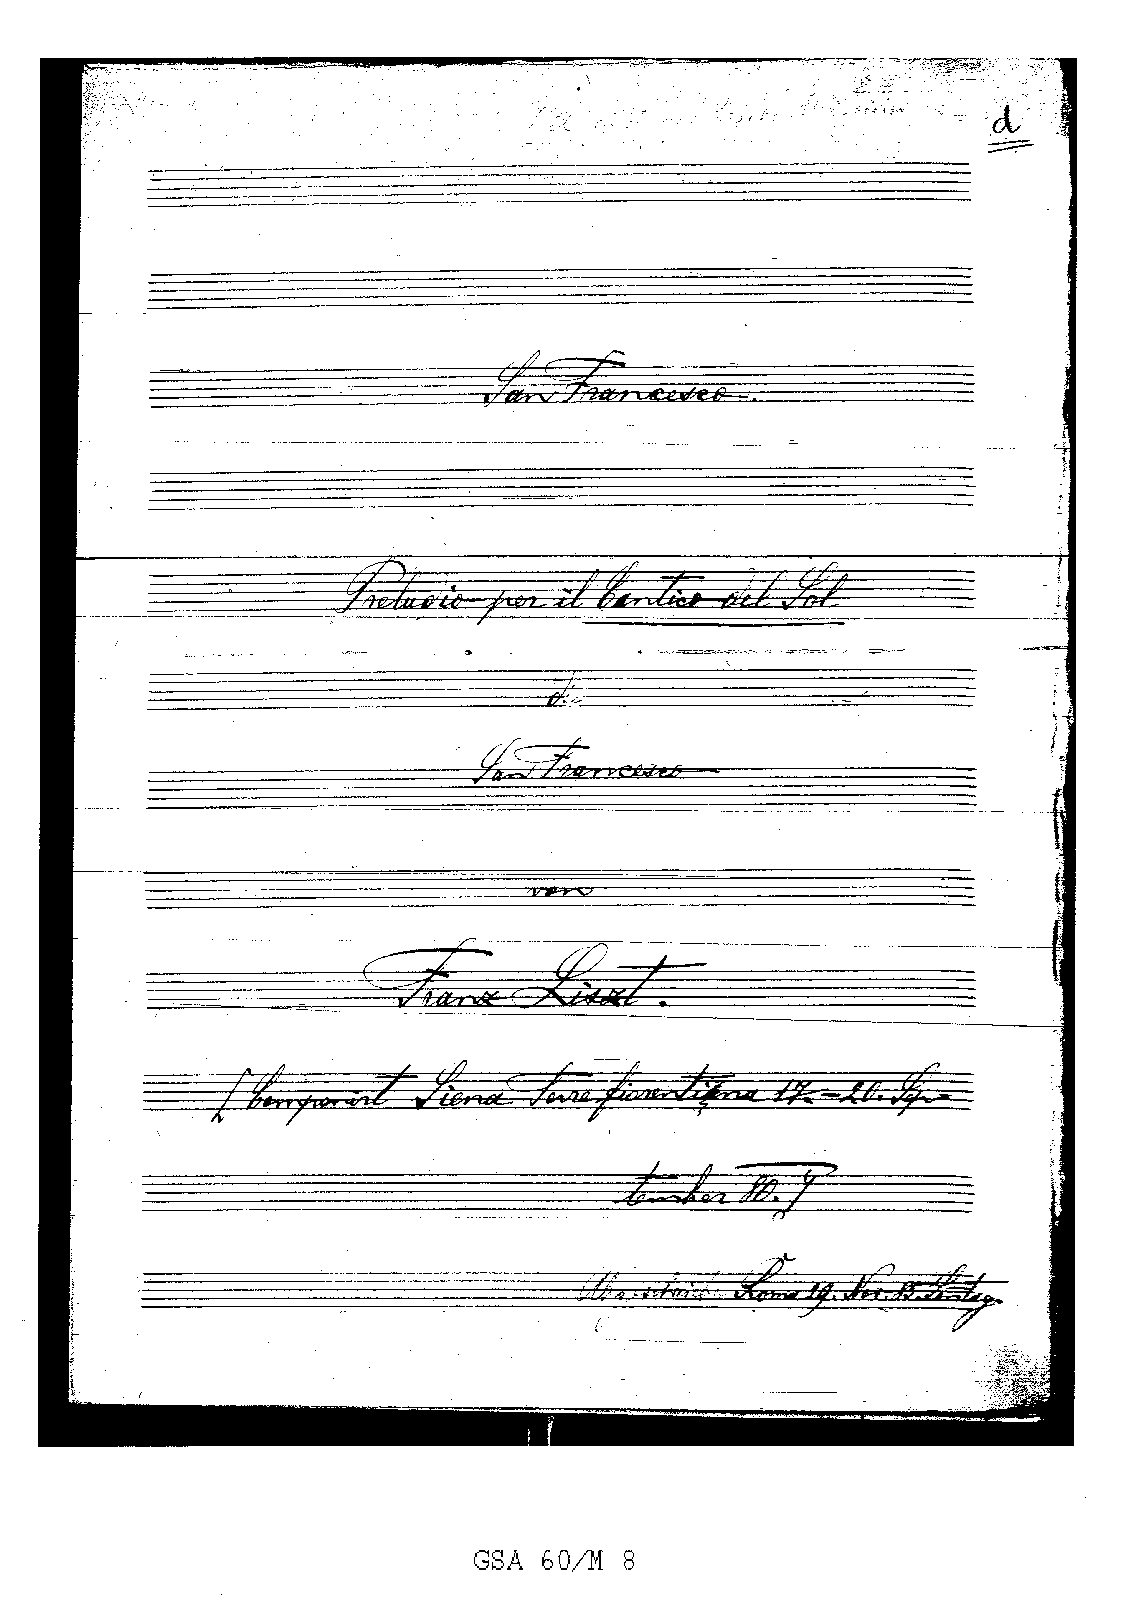 d
San Francesco.
Preludio per il Cantico del Sol
di
San Francesco
von
Franz Liszt.
[Componirt Siena Torre fiorentina 17.-20. Sep-
tember 80.]
Rom 29. Nov.
GSA 60/M 8